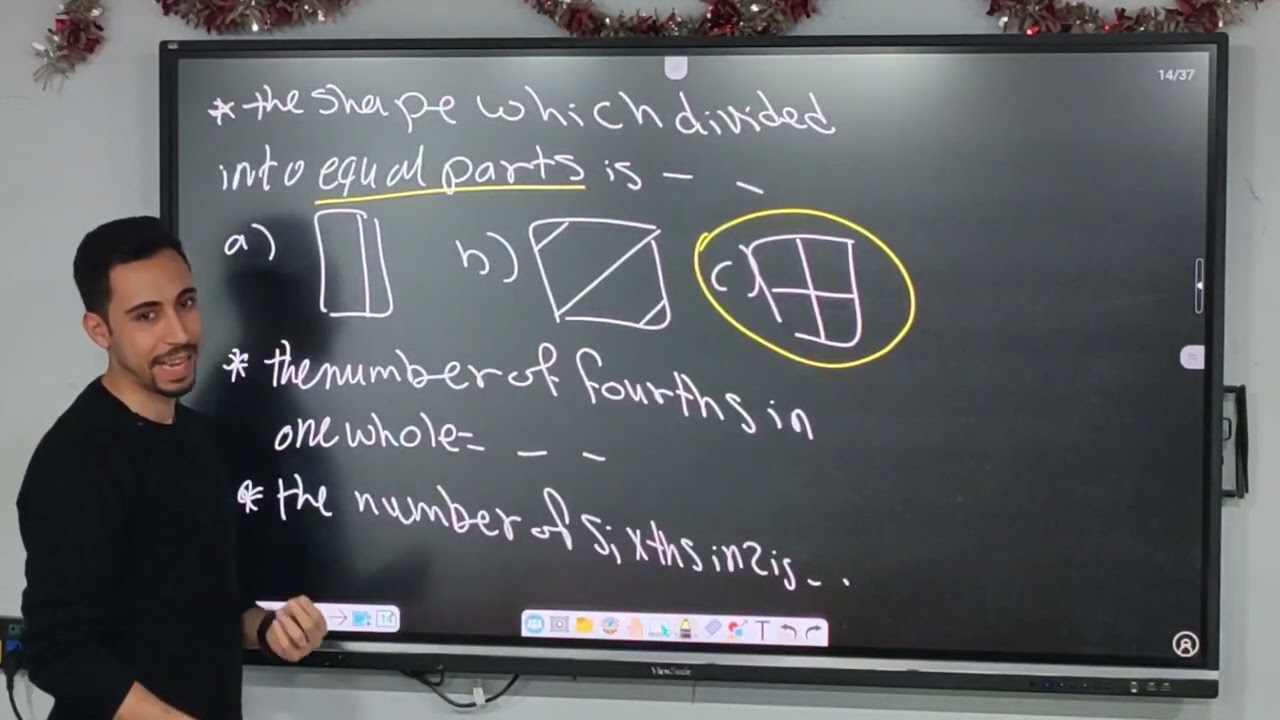 14/37
* the shape which divided
into equal parts is - -
a) b) c)
* the number of fourths in
one whole= - -
* the number of sixths in 2 is - .
14
T
ViewSonic